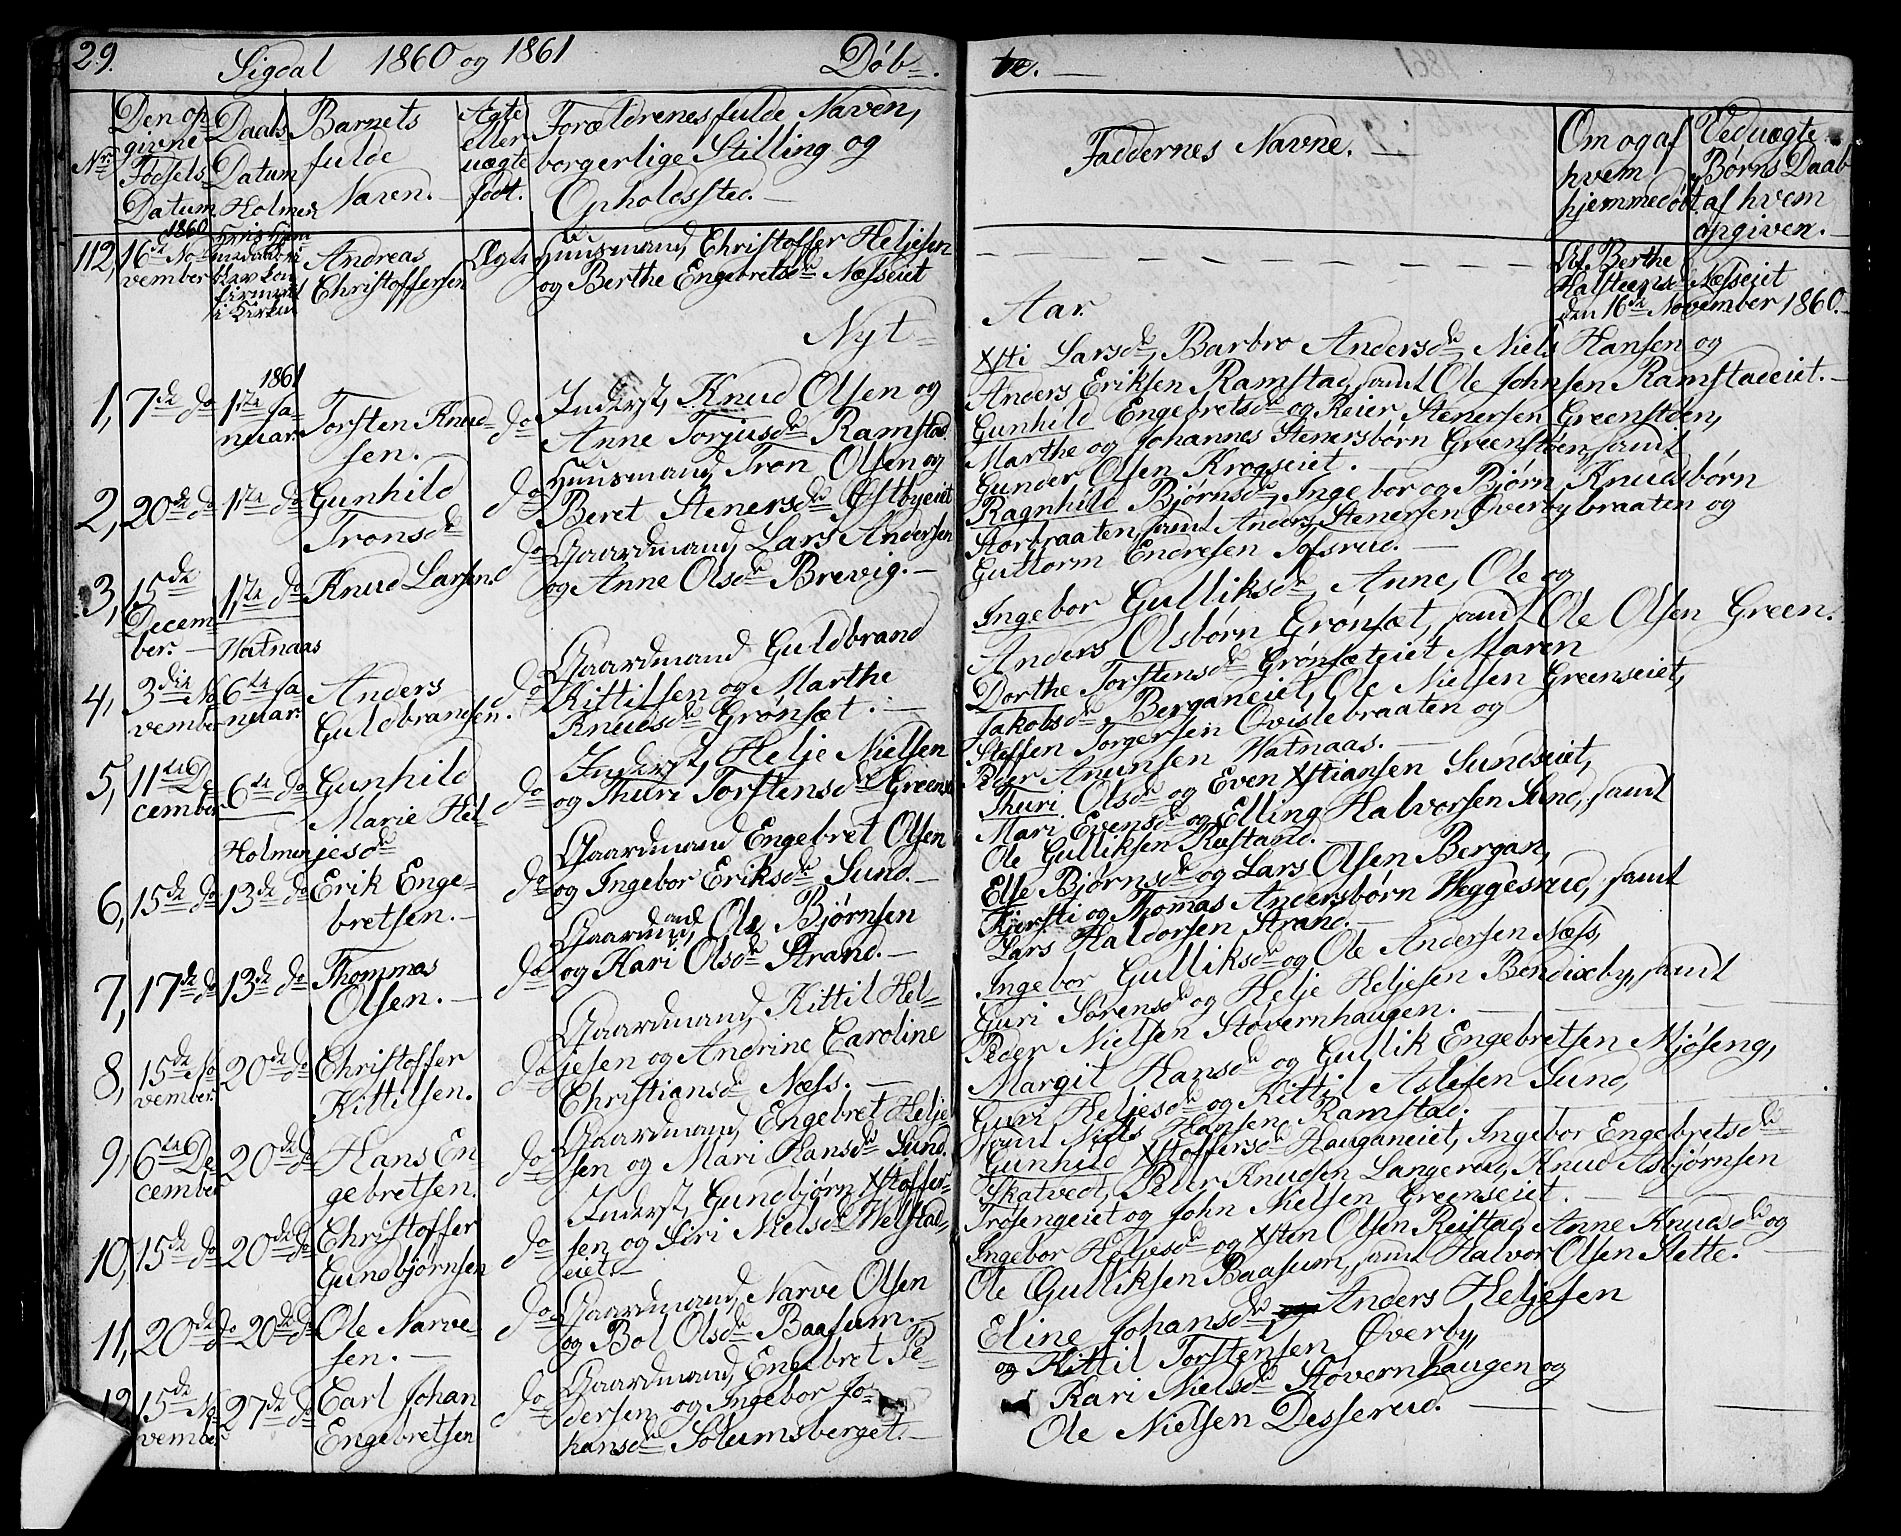 29. Sigdal 1860 og 1861 Døb- te.
Nr.
Den op-
givne
Fødsels
Datum
Daabs
Datum
Holmen
Barnets
fulde
Navn.
Ægte
eller
uægte
født.
Forældrenes fulde Navn,
borgerlige Stilling og
Opholdssted.
Faddernes Navne.
Om og af
hvem
hjemmedøbt
Ved uægte
Børns Daab
af hvem
opgiven.
112, 1860
16de No-
vember
firmeret
i Kirken
Andreas
Christoffersen
Ægte
Huusmand, Christoffer Heljesen
og Berthe Engebretsdr Næsseiet
Af Berthe
Halsteensdr Næsseiet
den 16de November 1860.
Nyt- Aar.
1, 7de do 1861 1ste Ja-
nuar.
Torsten Knud-
sen.
do
Inderst, Knud Olsen og
Anne Torjusdr Ramstad.
Xsti Larsdr, Barbro Andersdr, Niels Hansen og
Anders Eriksen Ramstad, samt Ole Johnsen Ramstadeiet.
2, 20de do 1ste do Gunhild
Tronsdr
do
Huusmand, Tron Olsen og
Beret Stenersdr Østbyeiet
Gunhild Engebretsdr og Reier Stenersen Greenstøen,
Marthe og Johannes Stenersbørn Greenstøen, samt
Gunder Olsen Krogseiet.
3, 15de
Decem-
ber.
1ste do Knud Larsen
do
Gaardmand, Lars Andersen
og Anne Olsdr Brevig.
Ragnhild Bjørnsdr, Ingebor og Bjørn Knudsbørn
Storbraaten, samt Anders Stenersen Overbybraaten og
Guttorm Endresen Tofsrud.
Watnaas
4, 3die No-
vember
6te Ja-
nuar.
Anders
Guldbrandsen.
do
Gaardmand Guldbrand
Kittilsen og Marthe
Knudsdr Grønsæt.
Ingebor Gulliksdr, Anne, Ole og
Anders Olsbørn Grønsæt, samt Ole Olsen Green.
5, 11te De-
cember
6te do
Gunhild
Marie Hel-
jesdr
do
Inderst, Helje Nielsen
og Thuri Torstensdr Greens
Dorthe Torstensdr Grønsæteiet Maren
Jakobsdr Berganeiet, Ole Nielsen Greenseiet,
Steffen Torgersen Qvislebraaten og
Peder Anunsen Watnaas.
Holmen
6, 15de do 13de do Erik Enge-
bretsen.
do
Gaardmand Engebret Olsen
og Ingebor Eriksdr Sund.
Thuri Olsdr og Even Xstiansen Sundseiet,
Mari Evensdr og Elling Halvorsen Sund, samt
Ole Gulliksen Rustand.
7, 17de do 13de do Thommas
Olsen.
do
Gaardmand, Ole Bjørnsen
og Kari Olsdr Strand.
Else Bjørnsdr og Lars Olsen Bergan,
Kjersti og Thomas Andersbørn Heggesrud, samt
Lars Haldorsen Strand.
8, 15de No-
vember.
20de do Christoffer
Kittilsen.
do
Gaardmand, Kittil Hel-
jesen og Andrine Caroline
Christiansdr Næss.
Ingebor Gulliksdr og Ole Andersen Næss,
Guri Sørensdr og Helje Heljesen Bendixby, samt
Peder Nielsen Støvernhaugen.
9, 6te De-
cember
20de do Hans En-
gebretsen.
do
Gaardmand, Engebret Helje-
sen og Mari Hansdr Sund.
Margit Hansdr og Gullik Engebretsen Mjøseng,
Guri Heljesdr og Kittil Aslesen Sund,
samt Niels Hansen Ramstad.
10, 15de do 20de do Christoffer
Gundbjørnsen
do
Inderst, Gundbjørn Xstoffer-
sen og Siri Nielsdr Welstad-
eiet.
Gunhild Xstoffersdr Hauganeiet, Ingebor Engebretsdr
Skatvedt, Peder Knudsen Langerud, Knud Asbjørnsen
Trøsengeiet og John Nielsen Greenseiet.
11, 20de do 20de do Ole Narve-
sen.
do
Gaardmand, Narve Olsen
og Bol Olsdr Baasum.
Ingebor Heljesdr og Xsten Olsen Reistad, Anne Knudsdr og
Ole Gulliksen Baasum, samt Halvor Olsen Slette.
12, 15de No-
vember
27de do Carl Johan
Engebretsen
do
Gaardmand, Engebret Pe-
dersen og Ingebor Jo-
hansdr Solumsberget.
Eline Johansdr, Anders Heljesen
og Kittil Torstensen Øverby,
Kari Nielsdr Støvernhaugen og
Ole Nielsen Desserud.